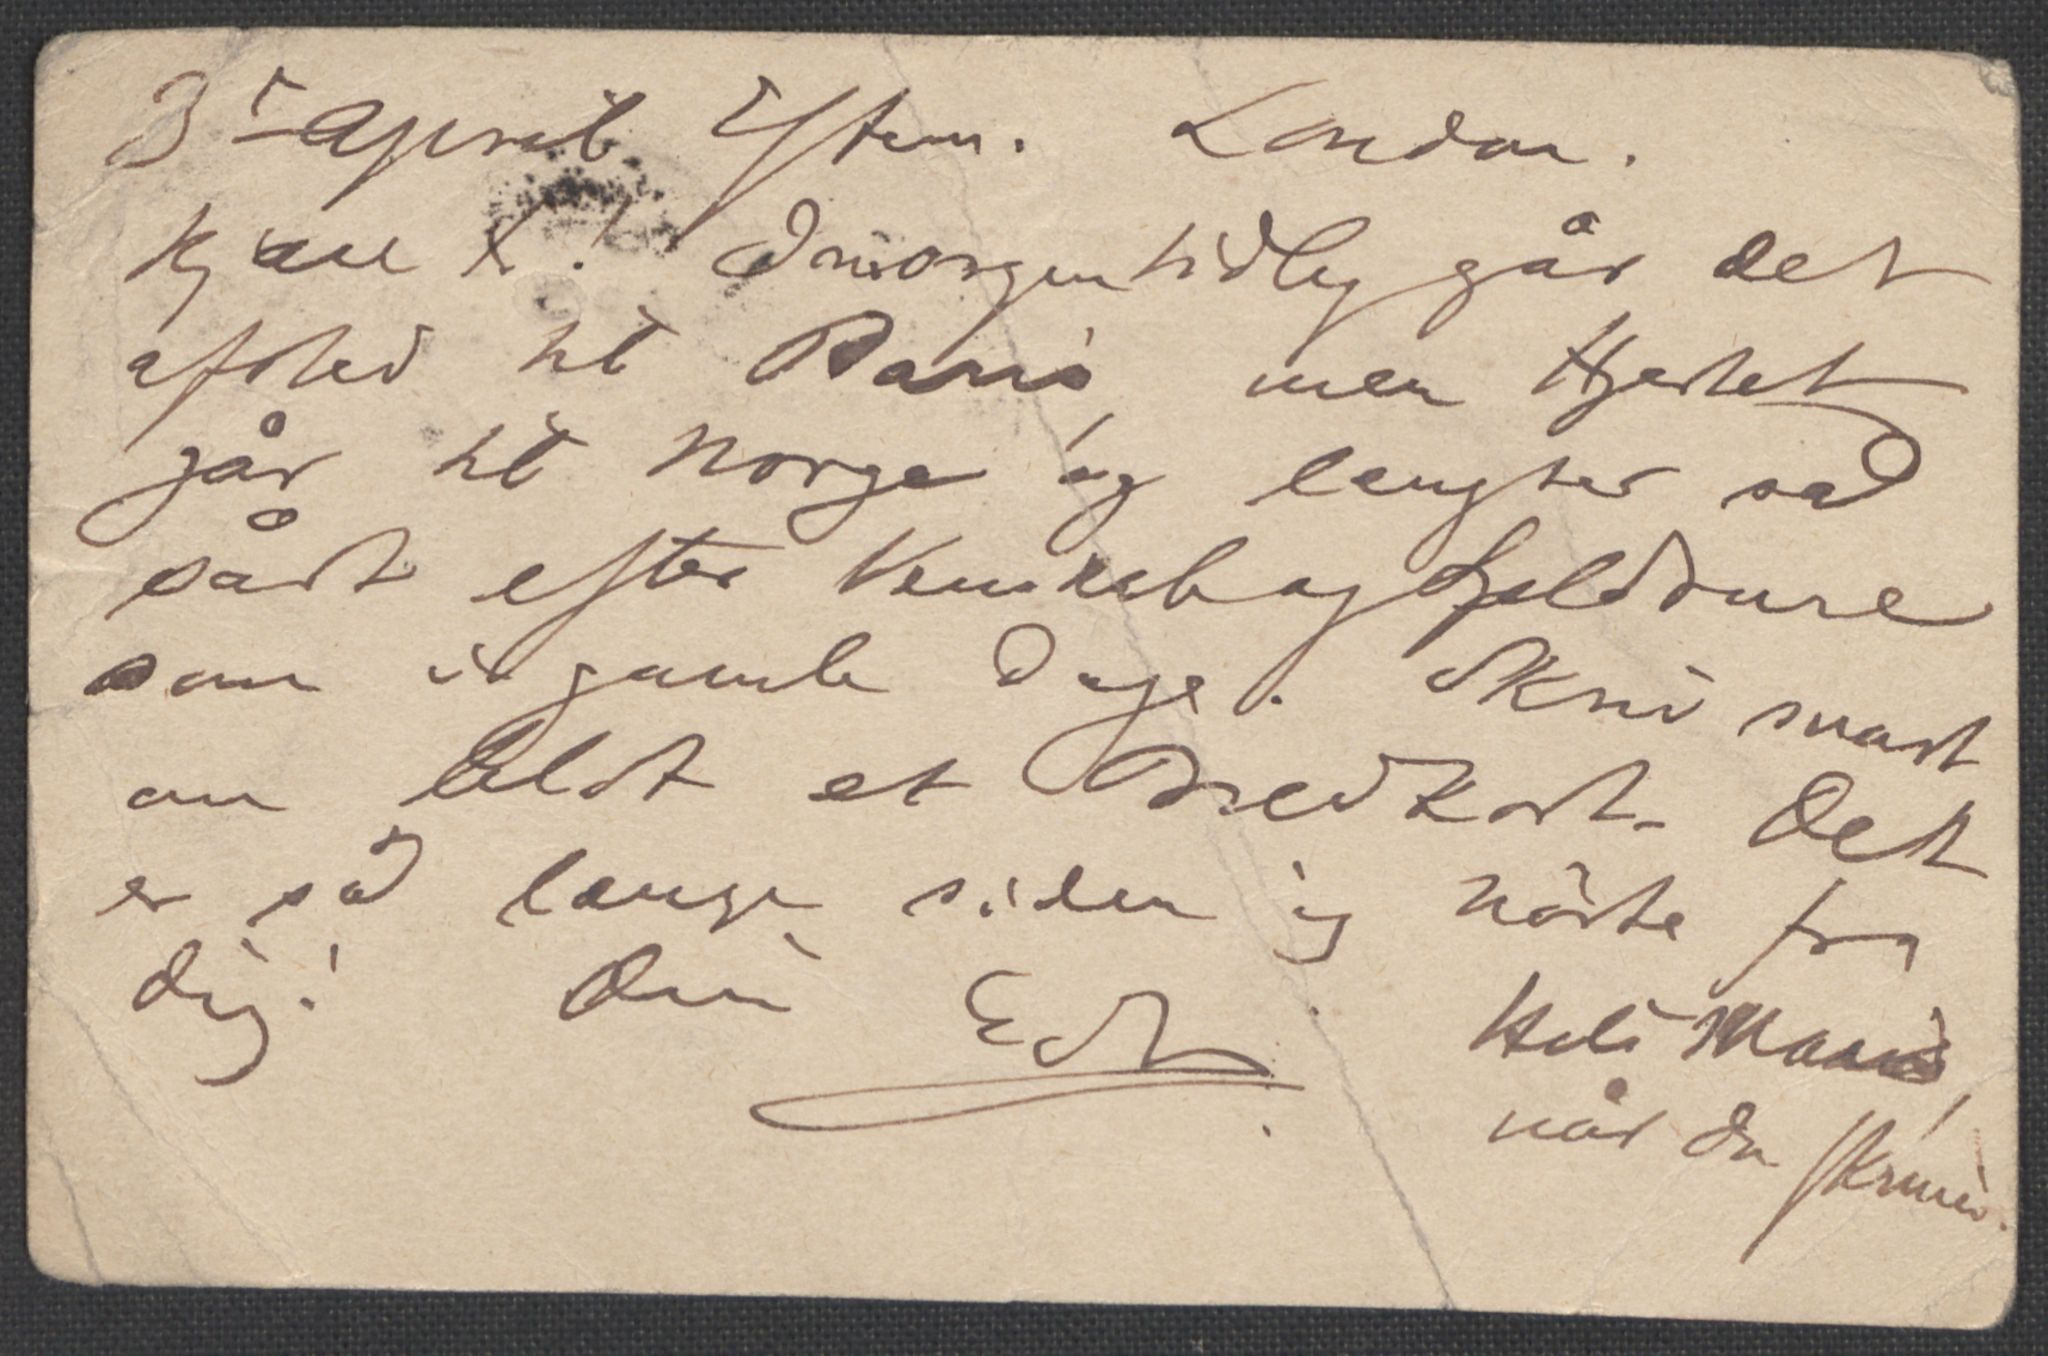 3die April Efterm. London.
Kjære X! Imorgen tidlig går det
afsted til Paris, men Hjertet
går til Norge og længter så
sårt efter Venskab og Fjeldture
som i gamle Dage. Skriv snart
om blot et Bredkort. Det
er så længe siden jeg hörte fra
Dig! Din Edv
Hils Marie,
når du skriver.